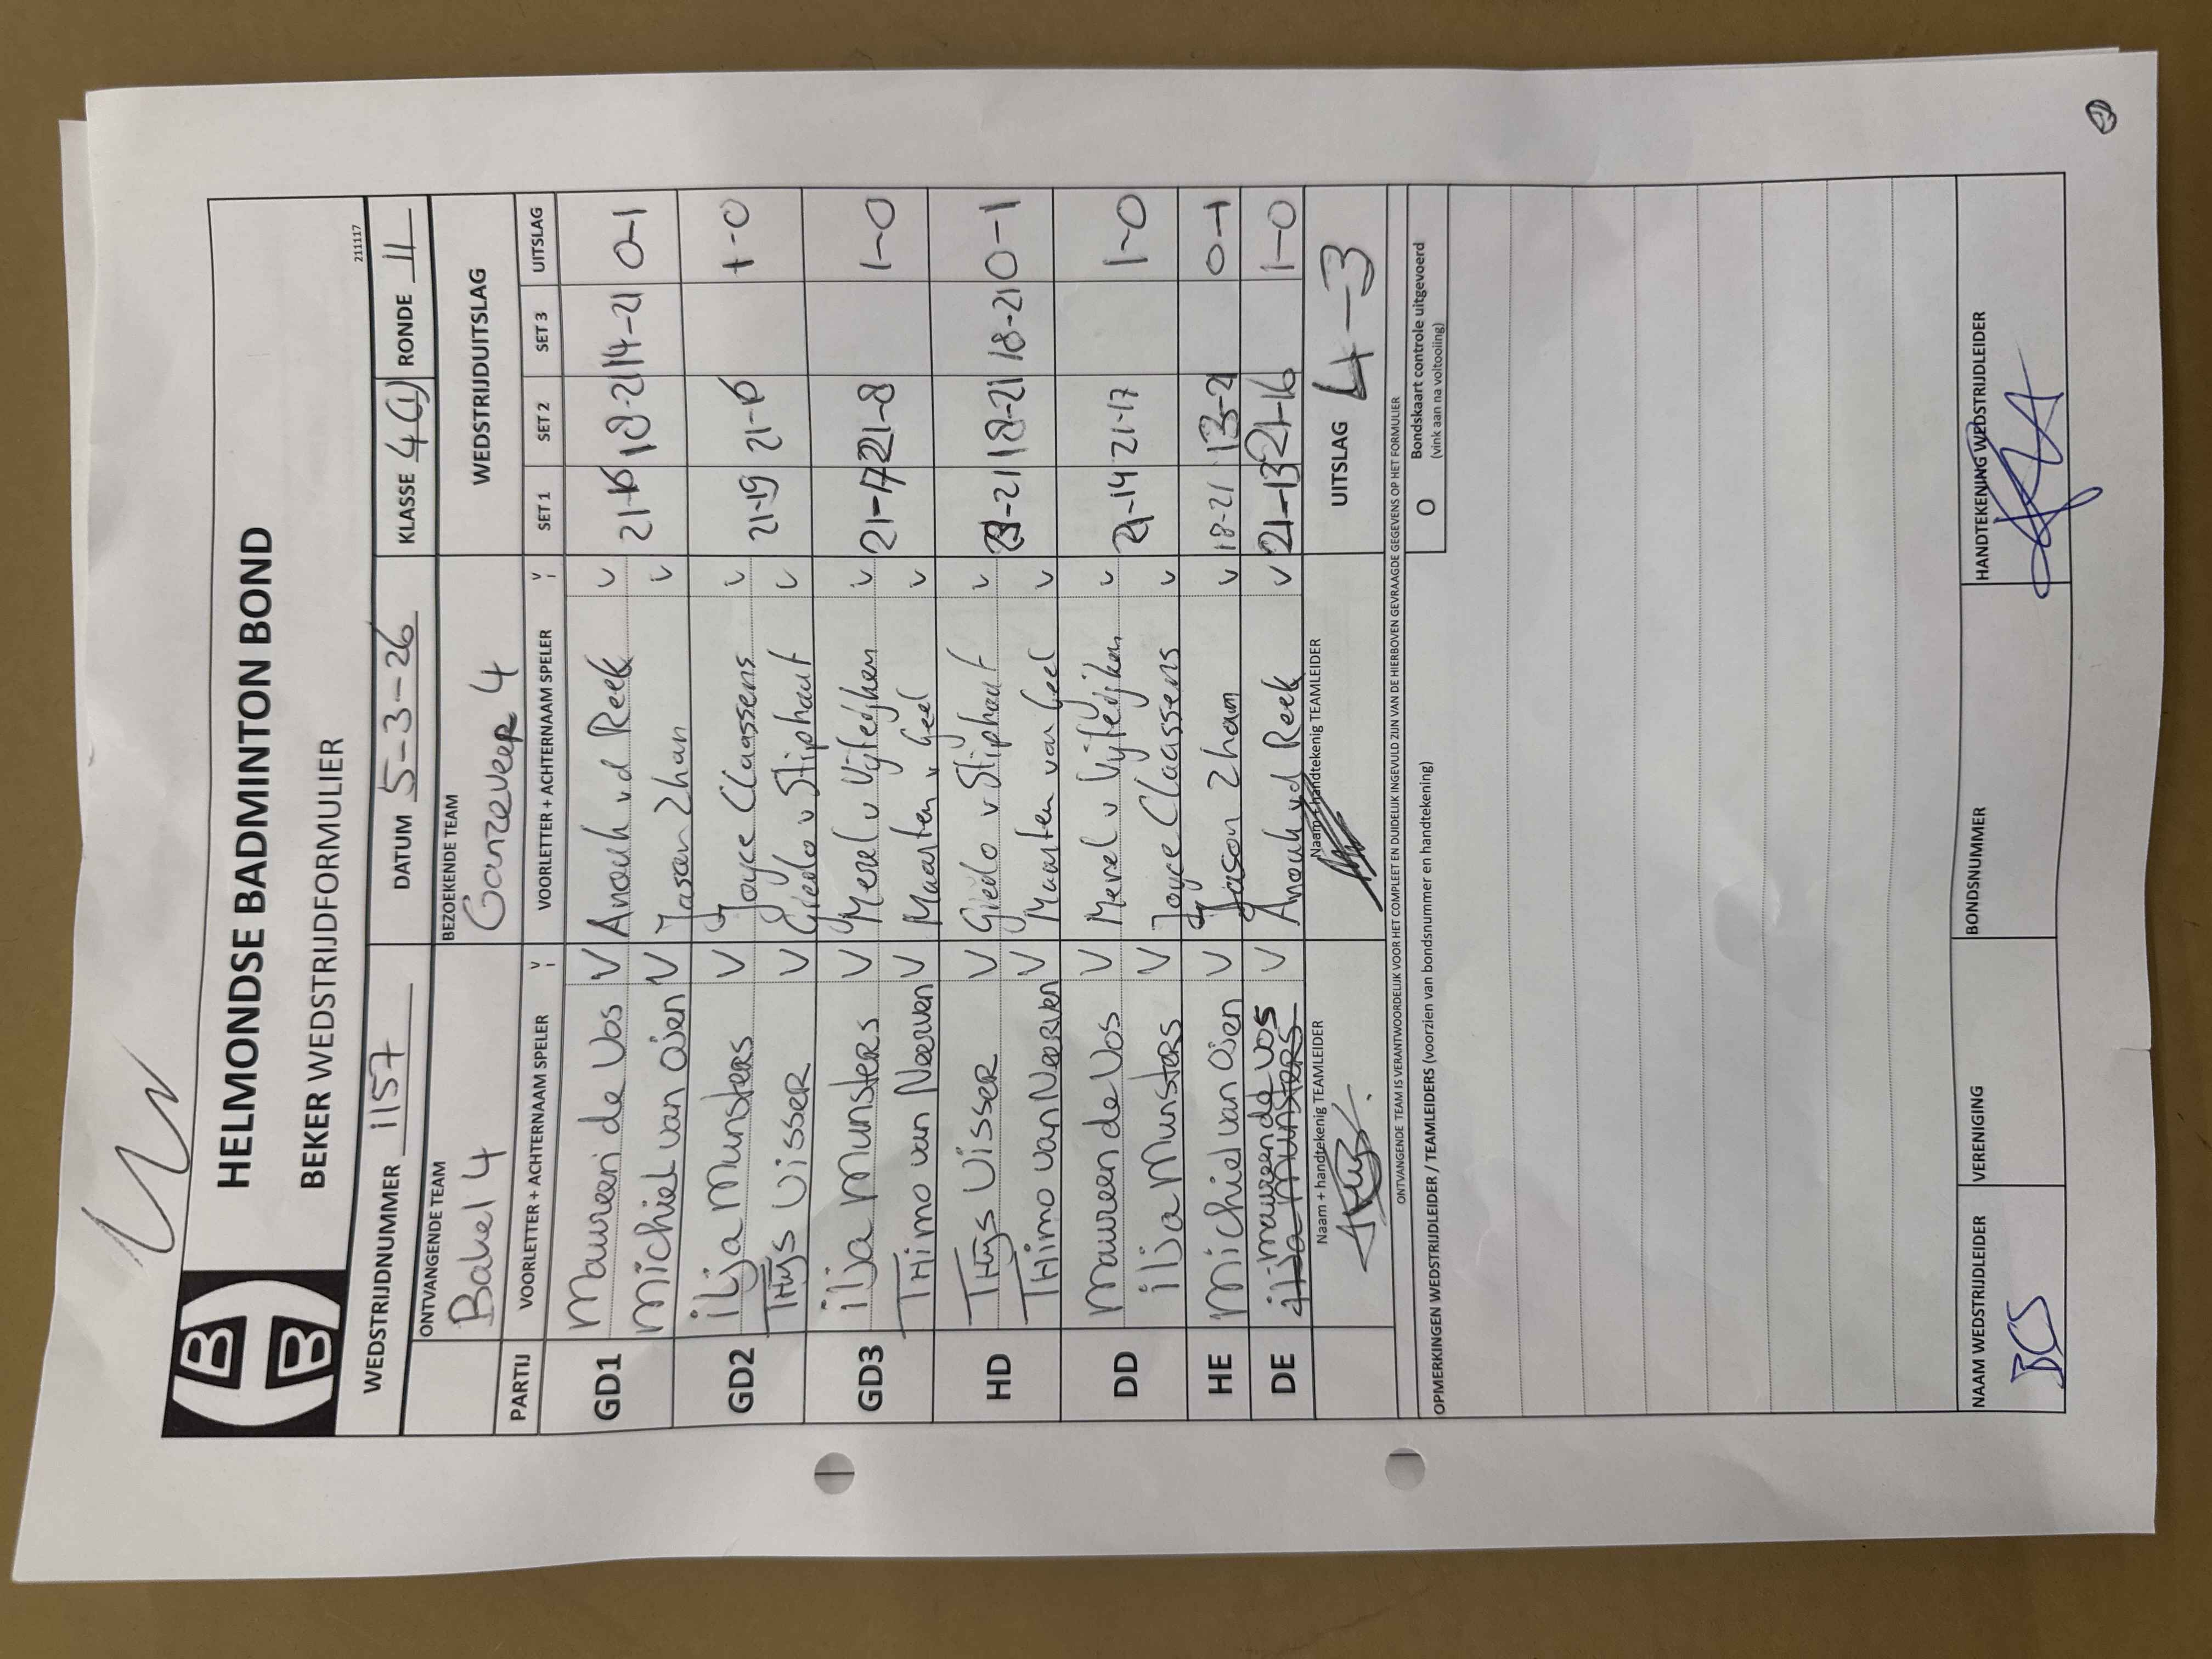 HELMONDSE BADMINTON BOND
BEKER WEDSTRIJDFORMULIER
211117
WEDSTRIJDNUMMER 1157 DATUM 5-3-26 KLASSE 4(1) RONDE 11
ONTVANGENDE TEAM BEZOEKENDE TEAM WEDSTRIJDUITSLAG
Bakel 4 Ganzeveer 4
PARTIJ VOORLETTER + ACHTERNAAM SPELER V VOORLETTER + ACHTERNAAM SPELER V SET 1 SET 2 SET 3 UITSLAG
GD1 Maureen de Vos V Anouk vd Reek V 21-16 18-21 14-21 0-1
Michiel van Osen V Jason Zhan V
GD2 ilja Munsters V Joyce Claassens V 21-19 21-16 1-0
THijs Visser V Giedo v Stiphout V
GD3 ilja Munsters V Merel v Vijfeijken V 21-17 21-8 1-0
THimo van Neerven V Maarten v Geel V
HD THijs Visser V Giedo v Stiphout V 18-21 18-21 0-1
THimo van Neerven V Maarten van Geel V
DD Maureen de Vos V Merel v Vijfeijken V 21-14 21-17 1-0
ilja Munsters V Joyce Claassens V
HE Michiel van Osen V Jason Zhan V 18-21 13-21 0-1
DE maureen de Vos V Anouk vd Reek V 21-13 21-16 1-0
ilja Munsters
Naam + handtekenig TEAMLEIDER Naam + handtekenig TEAMLEIDER UITSLAG 4-3
ONTVANGENDE TEAM IS VERANTWOORDELIJK VOOR HET COMPLEET EN DUIDELIJK INGEVULD ZIJN VAN DE HIERBOVEN GEVRAAGDE GEGEVENS OP HET FORMULIER
OPMERKINGEN WEDSTRIJDLEIDER / TEAMLEIDERS (voorzien van bondsnummer en handtekening)
O Bondskaart controle uitgevoerd
(vink aan na voltooiing)
NAAM WEDSTRIJDLEIDER VERENIGING BONDSNUMMER HANDTEKENING WEDSTRIJDLEIDER
BCS